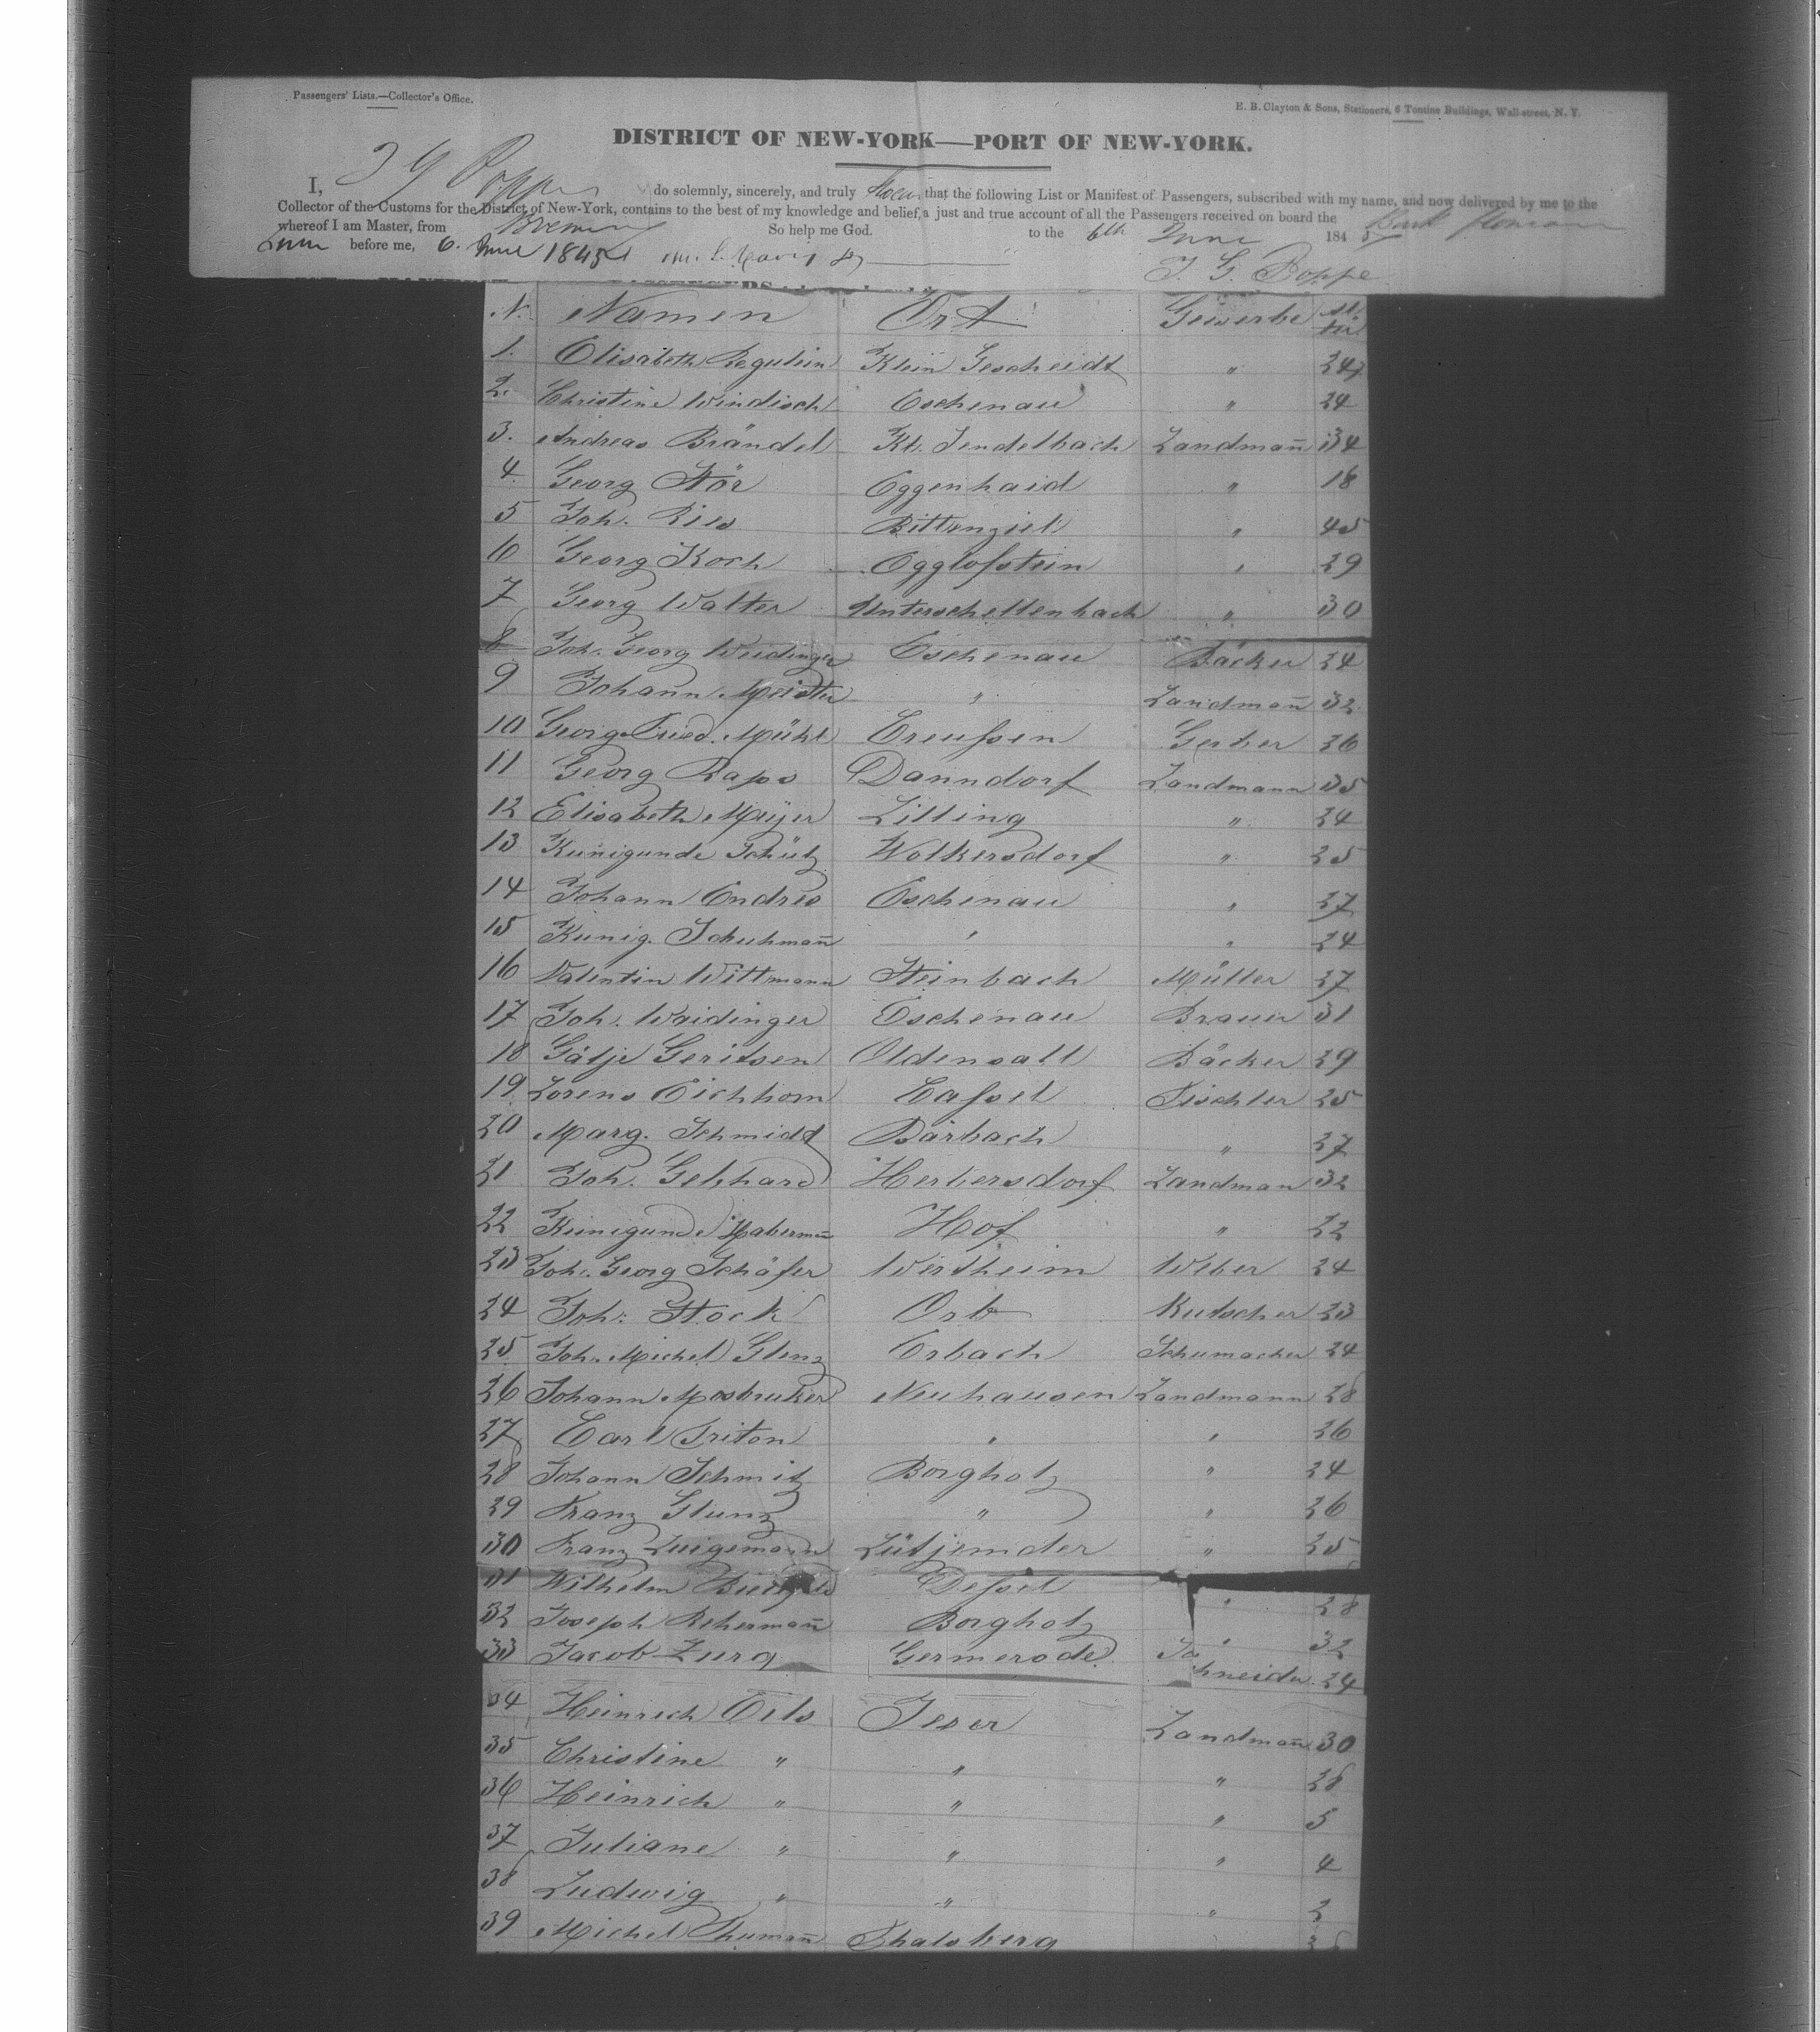 Passengers' Lists.—Collector's Office.
E. B. Clayton & Sons, Stationers, 6 Tontine Buildings, Wall-street, N. Y.
DISTRICT OF NEW-YORK—PORT OF NEW-YORK.
I, J G Poppe do solemnly, sincerely, and truly that the following List or Manifest of Passengers, subscribed with my name, and now delivered by me to the
Collector of the Customs for the District of New-York, contains to the best of my knowledge and belief, a just and true account of all the Passengers received on board the Bark
whereof I am Master, from Bremen So help me God. to the 6th June 1845
before me, 6. June 1845 J. G. Poppe
N. Namen Ort Gewerbe Alter
1. Elisabeth Regulein Klein Gescheidt " 24
2. Christine Windisch Eschenau " 24
3. Andreas Brändel Kl. Sendelbach Landmañ 34
4. Georg Stör Oggenhaid " 18
5 Joh. Ries " 45
6 Georg Koch Egglofstein " 29
7 Georg Walter Unterschellenbach " 30
8 Joh. Georg Weidinger Eschenau Bäcker 24
9 Johann Meister " Landmañ 32
10 Georg Fried. Mühl Creußen Gerber 26
11 Georg Raps Danndorf Landmann 35
12 Elisabeth Meijer Lilling " 24
13 Kunigunde Schütz Wolkersdorf " 25
14 Johann Endres Eschenau " 27
15 Kunig. Schuhmañ " " 24
16 Valentin Wittmann Steinbach Müller 27
17 Joh. Waidinger Eschenau Brauer 31
18 Gätje Geritsen Oldensall Bäcker 29
19 Lorens Eichhorn Cassel Tischler 25
20 Marg. Schmidt Bärbach " 27
21 Joh. Gebhard Herbersdorf Landman 32
22 Kunigunde Habermañ Hof " 22
23 Joh. Georg Schäfer Wertheim Weber 24
24 Joh. Stock Orb Kutscher 23
25 Joh. Michel Glenz Erbach Schumacher 24
26 Johann Mosbruker Neuhausen Landmann 28
27 Carl Triton " " 26
28 Johann Schmitz Borgholz " 24
29 Franz Glunz " " 26
30 Franz Luigemann Lütjemder " 25
31 Wilhelm Deßel " 28
32 Joseph Rehermañ Borgholz " 32
33 Jacob Zurg Germerode Schneider 24
34 Heinrich Oels Jeser Landmañ 30
35 Christine " " " 28
36 Heinrich " " " 5
37 Juliane " " " 4
38 Ludwig " " " 2
39 Michel Thumañ Thalsberg